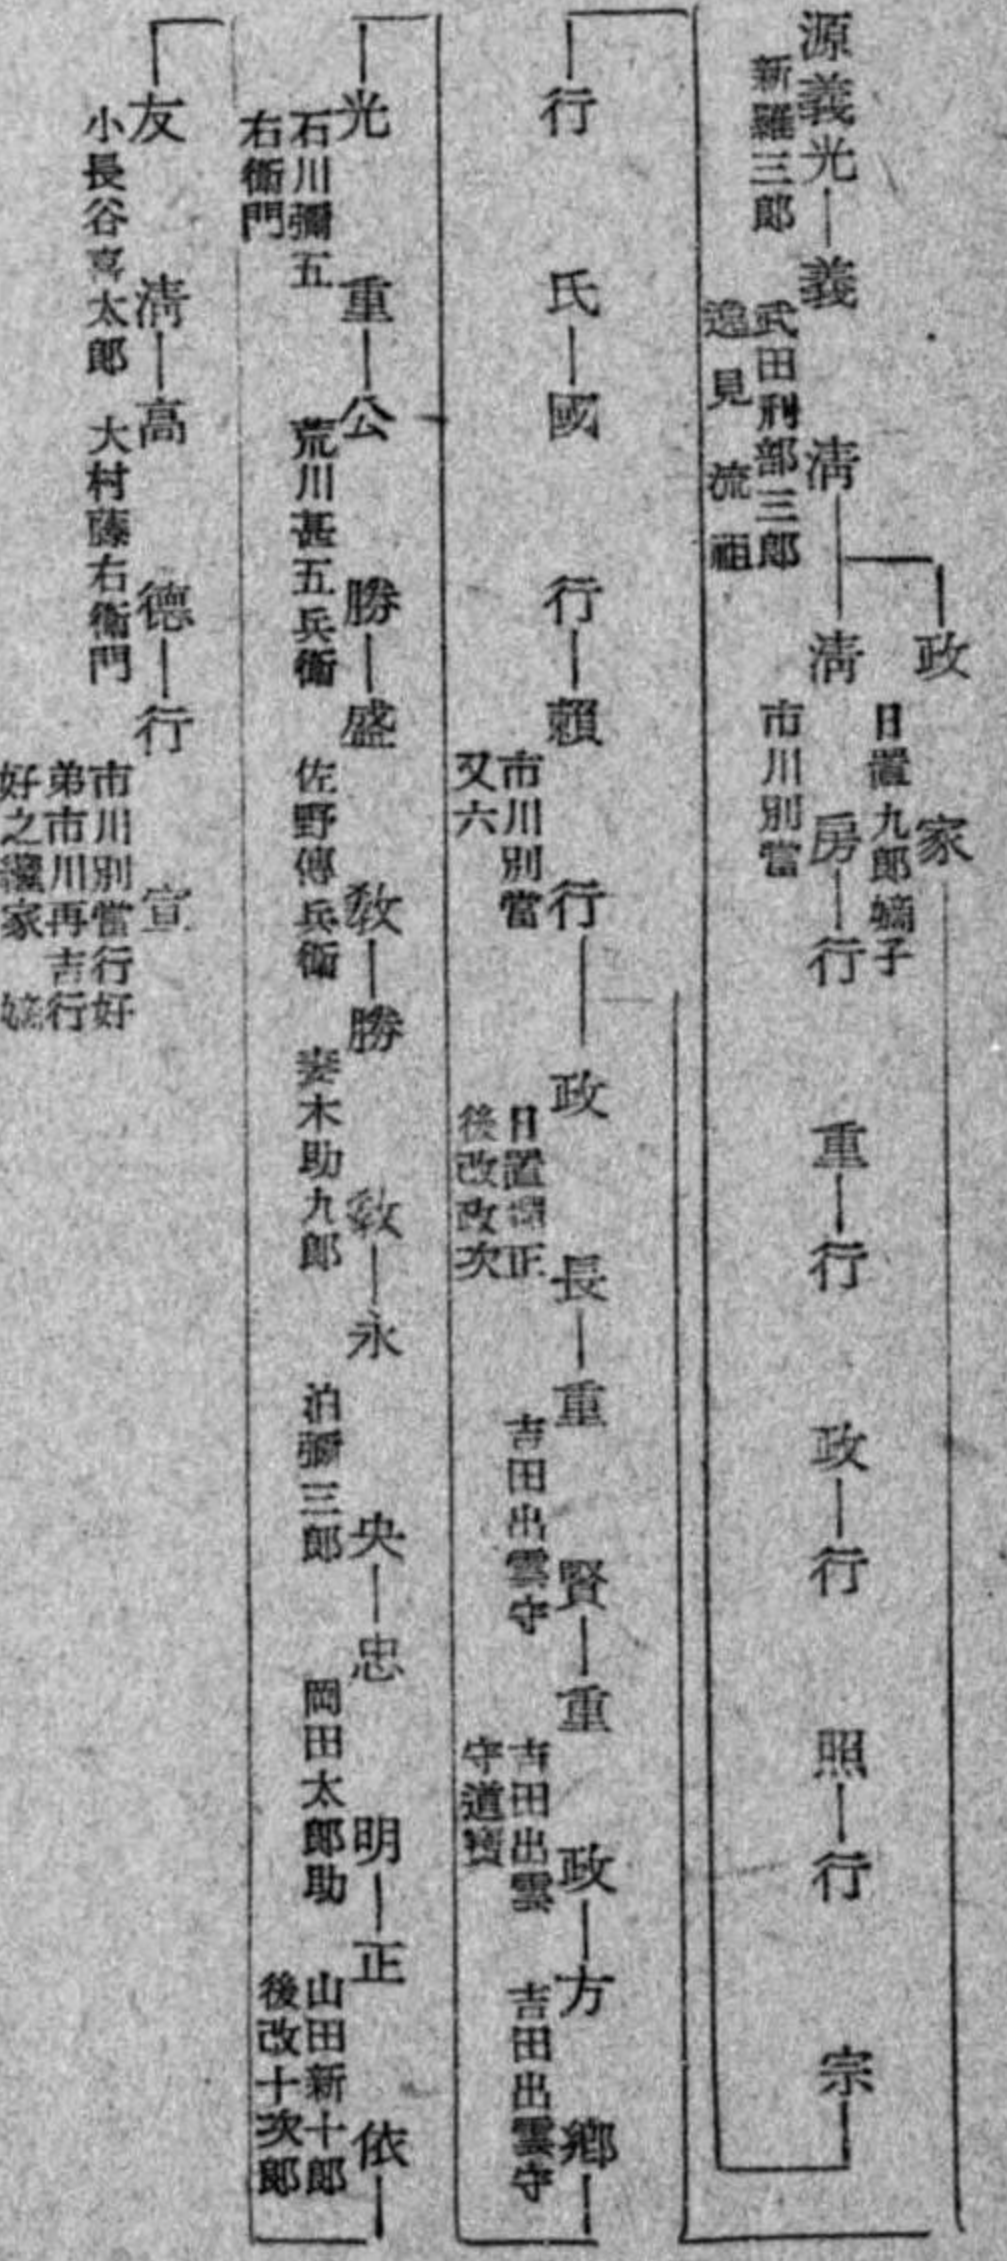 源義光
新羅三郎
義淸
武田刑部三郎
逸見流祖
政家
日置九郎嫡子
淸房
市川別當
行重
行政
行照
行宗
行氏
國行
賴行
市川別當
又六
政長
日置彈正
後改政次
重賢
吉田出雲守
重政
吉田出雲
守道寶
方鄕
吉田出雲守
光重
石川彌五
右衞門
公勝
荒川甚五兵衞
盛敎
佐野傳兵衞
勝敎
妻木助九郎
永央
泊彌三郎
忠明
岡田太郎助
正依
山田新十郎
後改十次郎
友淸
小長谷喜太郎
高德
大村藤右衞門
行宣
市川別當行好
弟市川再吉行
好之 家